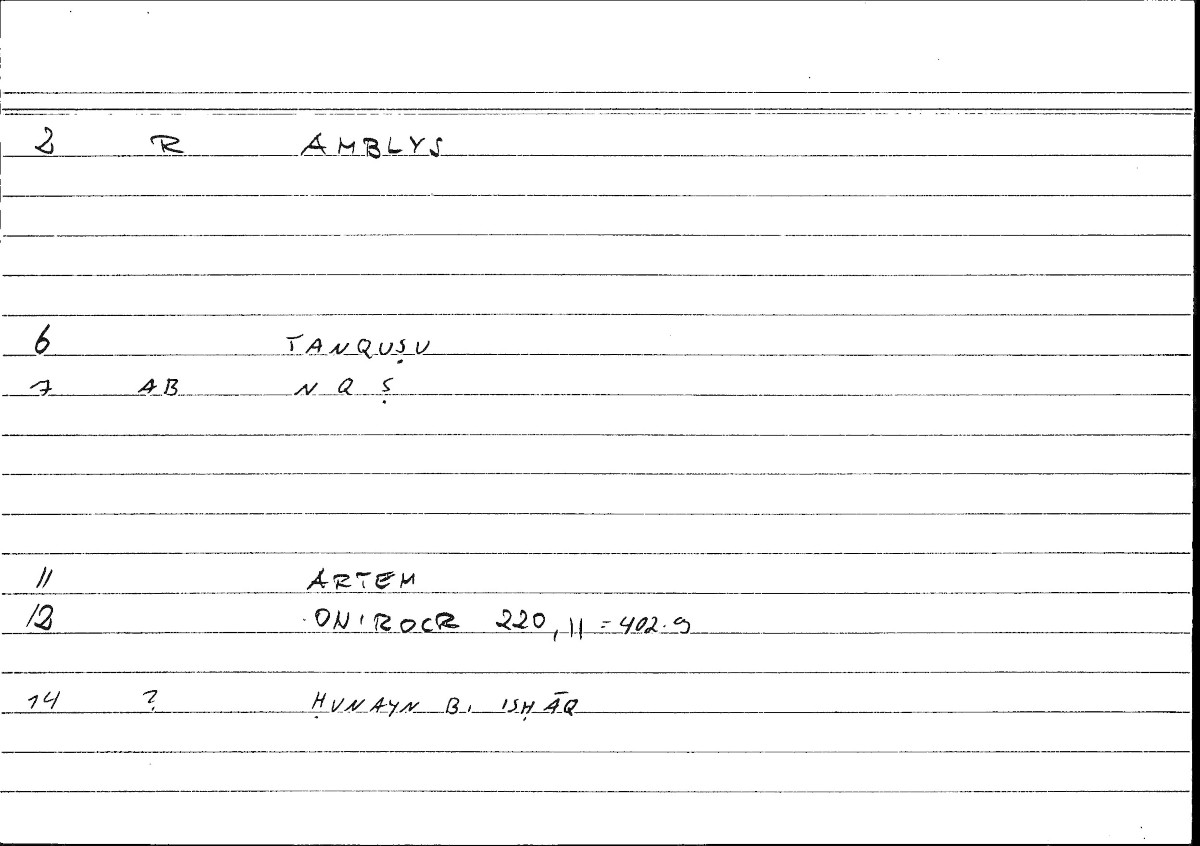 2 R AMBLYS
6 TANQUṢU
7 AB N Q Ṣ
11 ARTEM
12 ONIROCR 220,11 = 402.9
14 ? ḤUNAYN B. ISḤĀQ